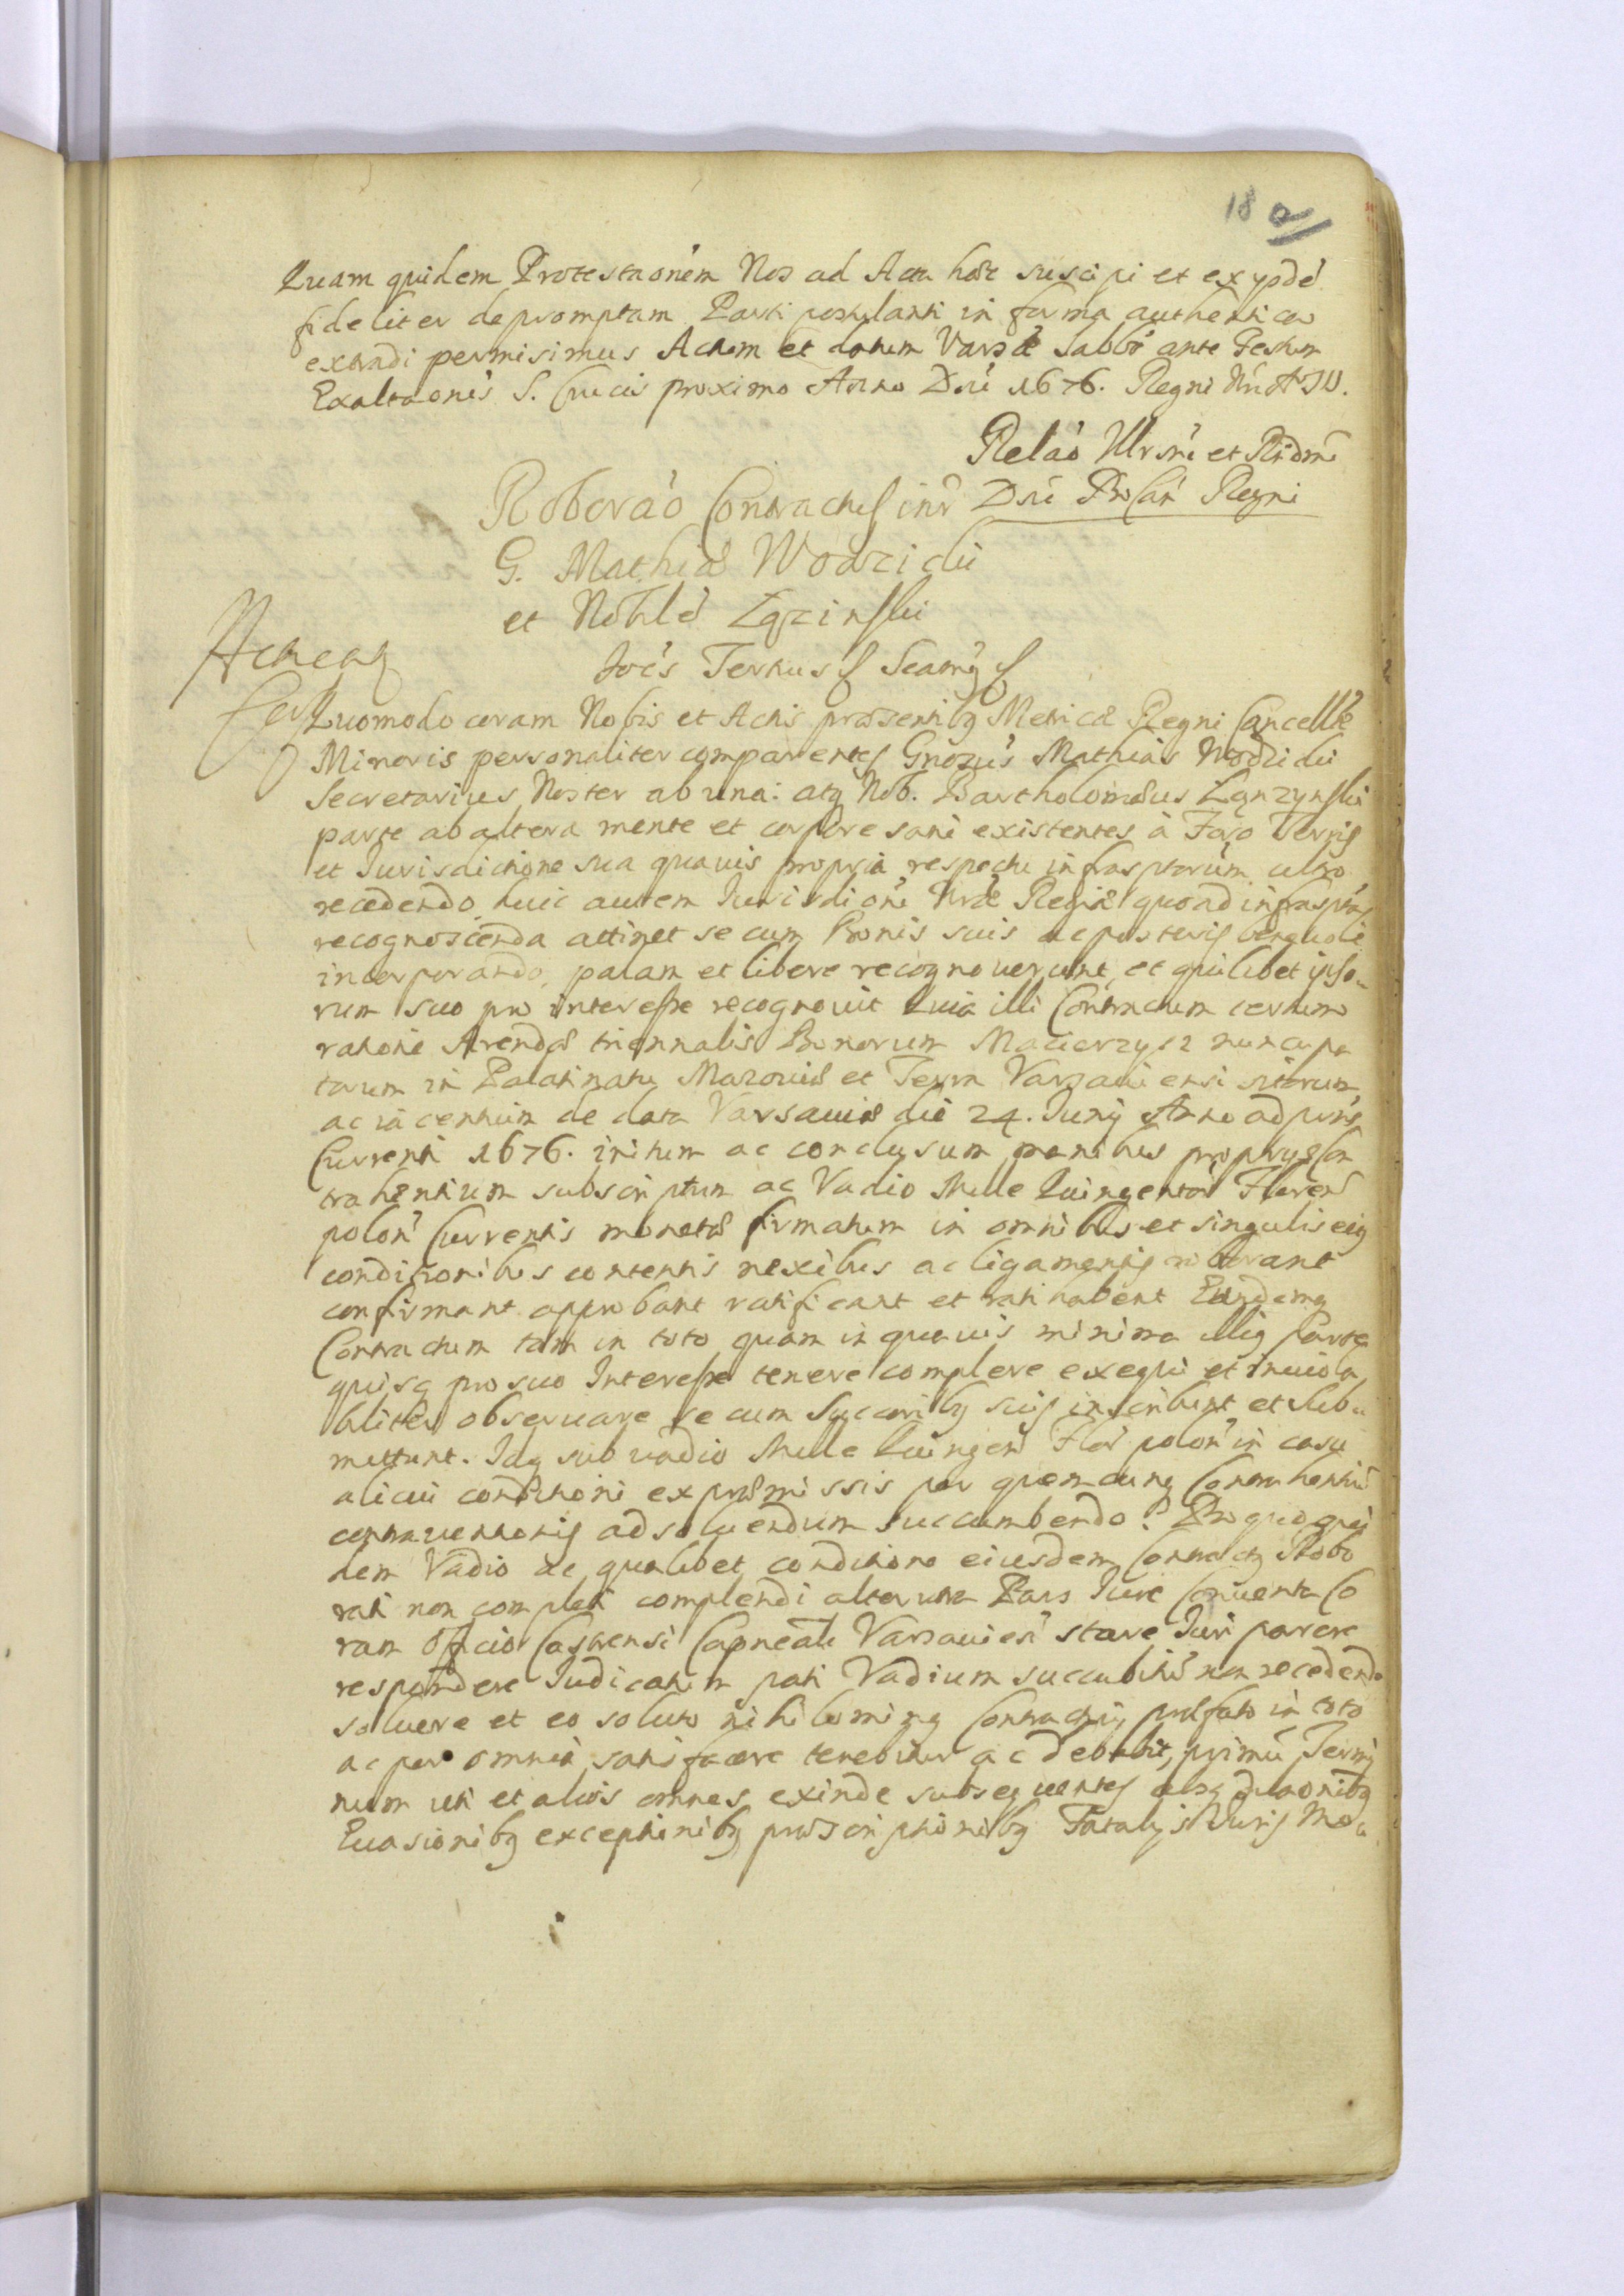 18 a
Quam quidem Protestaōnem Nos ad Acta haec suscipi et ex ypsdē
fideliter depromptam Parti postulanti in forma authentica
extradi permisimus Actum et datum Varsae Sabbō ante Festum
Exaltaōnis S. Crucis proximo Anno Dni 1676. Regni Nri A IV.
Relaō Illrsmi et Rndmi
Dni ProCan Regni
Roboraō Contractus inr
G. Mathiae Wodzicki
et Nobilē
Ioēs Ternus
Quomodo coram Nobis et Actis praesentibq Metricae Regni Cancellae
Minoris personaliter comparentes Gnosus Mathias Wodzicki
Secretarius Noster ab una: atq Nob. Bartholomaeus
parte ab altera mente et corpore sani existentes à Foro Terris
et Jurisdictione sua quavis propria respectu infrasptorum ultro
recedendo huic autem Jurisdiōni Nrae Regiae quoad infraspta
recognoscenda attinet se cum Bonis suis ac posteris
incorporando, palam et libere recognoverunt, et quilibet ipso-
rum suo pro interesse recognovit Quia illi Contractum certum
ratione Arendae triennalis Bonorum Macierzysz nuncupa
torum in Palatinatu Mazoviae et Terra Varsaviensi sitorum
ac iacentium de data Varsaviae die 24. Junÿ Anno ad prns
Currenti 1676. initum ac conclusum manibus proprys Con
trahentium subscriptum ac Vadio Mille Quingentor Floren
polon Currentis monetae firmatum in omnibus et singulis eiq
conditionibus contentis nexibus ac ligamentis roborant
confirmant approbant ratificant et ratihabent Eundemq
Contractum tam in toto quam in quavis minima illiq parte
quisq pro suo Interesse tenere complere exequi et inviola
biliter observare se cum Succoribq suis inscribunt et Sub-
mittunt. Idq sub vadio Mille Quingen Flor polon in casu
alicui conditioni ex praemissis per quemcunq Contrahentiū
contraventionis ad solvendum succumbendo. Pro quo qui
dem Vadio ac qualibet conditione eiusdem Contractq Robo
rati non completi complendi alterutra Pars Jure Conventa Co
ram Officio Castrensi Capneali Varsaviesi stare Juri parere
respondere Judicatum pati Vadium succubitū non recedendo
solvere et eo soluto nihilominq Contractui praefato in toto
ac per omnia satisfacere tenebitur ac debebit, primū Termi
num uti et alios omnes exinde subsequentes absq dilaōnibq
Evasionibq exceptionibq praescriptionibq Fatalis Juris Mo-